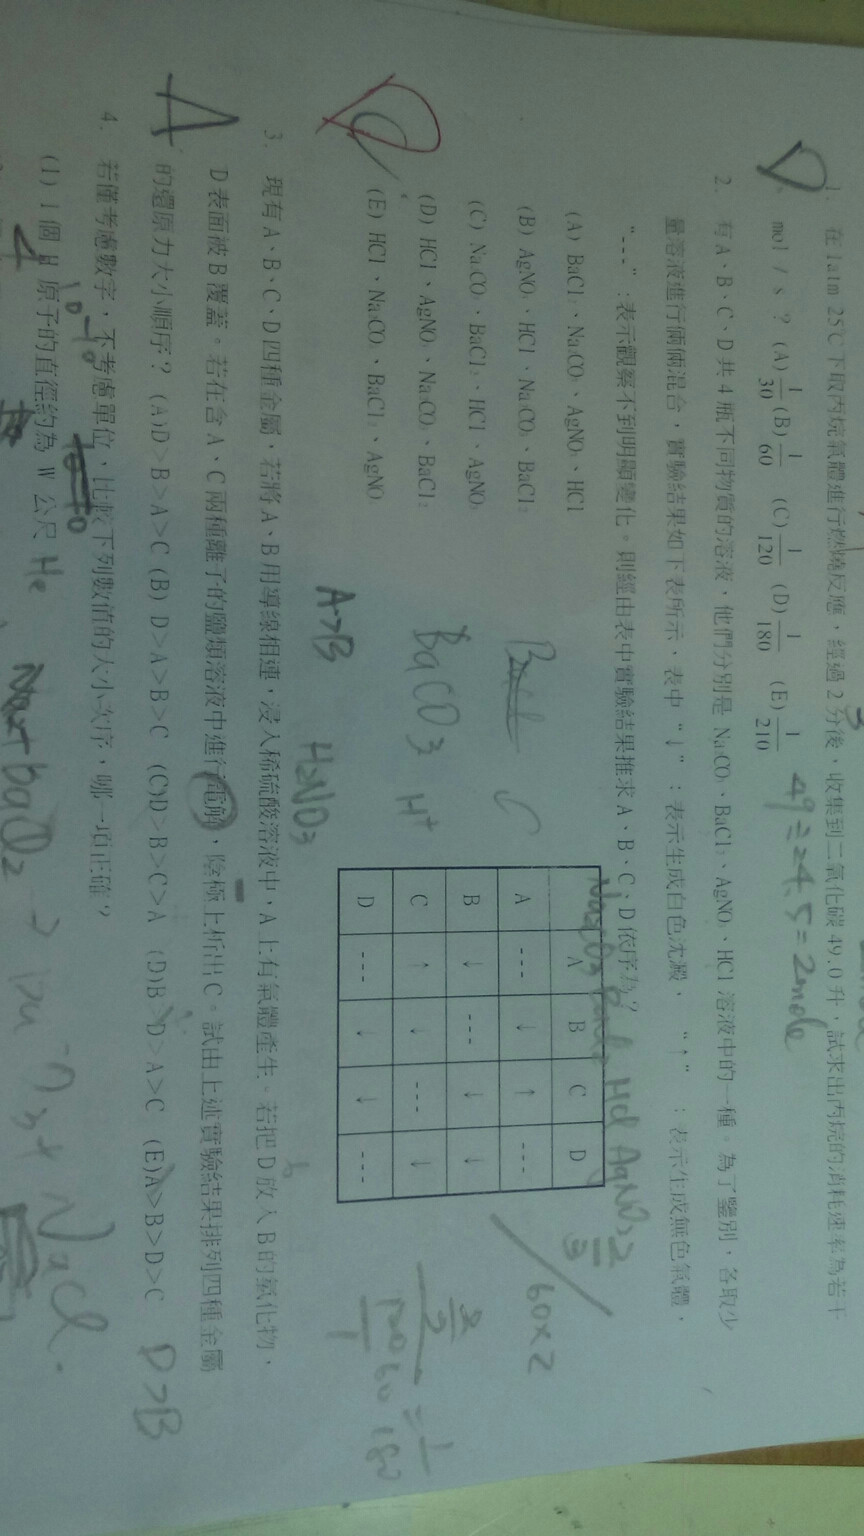 1. 在1atm 25℃下取丙烷氣體進行燃燒反應,經過2分後,收集到二氧化碳49.0升,試求出丙烷的消耗速率為若干
mol/s?(A) 1/30 (B) 1/60 (C) 1/120 (D) 1/180 (E) 1/210
49÷24.5=2mole
2. 有A、B、C、D共4瓶不同物質的溶液,他們分別是Na₂CO₃、BaCl₂、AgNO₃、HCl溶液中的一種。為了鑒別,各取少
量溶液進行兩兩混合,實驗結果如下表所示,表中“↓”:表示生成白色沈澱,“↑”:表示生成無色氣體,
“---”:表示觀察不到明顯變化。則經由表中實驗結果推求A、B、C、D依序為?
(A) BaCl₂、Na₂CO₃、AgNO₃、HCl
(B) AgNO₃、HCl、Na₂CO₃、BaCl₂
(C) Na₂CO₃、BaCl₂、HCl、AgNO₃
(D) HCl、AgNO₃、Na₂CO₃、BaCl₂
(E) HCl、Na₂CO₃、BaCl₂、AgNO₃
HCl AgNO₃
A B C D
A --- ↓ ↑ ---
B ↓ --- ↓ ↓
C ↑ ↓ --- ↓
D --- ↓ ↓ ---
BaCO₃ H⁺
60×2
A>B
H₂NO₃
3. 現有A、B、C、D四種金屬,若將A、B用導線相連,浸入稀硫酸溶液中,A上有氣體產生。若把D放入B的氯化物,
D表面被B覆蓋。若在含A、C兩種離子的鹽類溶液中進行電解,陰極上析出C。試由上述實驗結果排列四種金屬
A
的還原力大小順序?(A)D>B>A>C (B) D>A>B>C (C)D>B>C>A (D)B>D>A>C (E)A>B>D>C
D>B
4. 若僅考慮數字,不考慮單位,比較下列數值的大小次序,哪一項正確?
(1) 1個H原子的直徑約為W公尺
He
NaCl